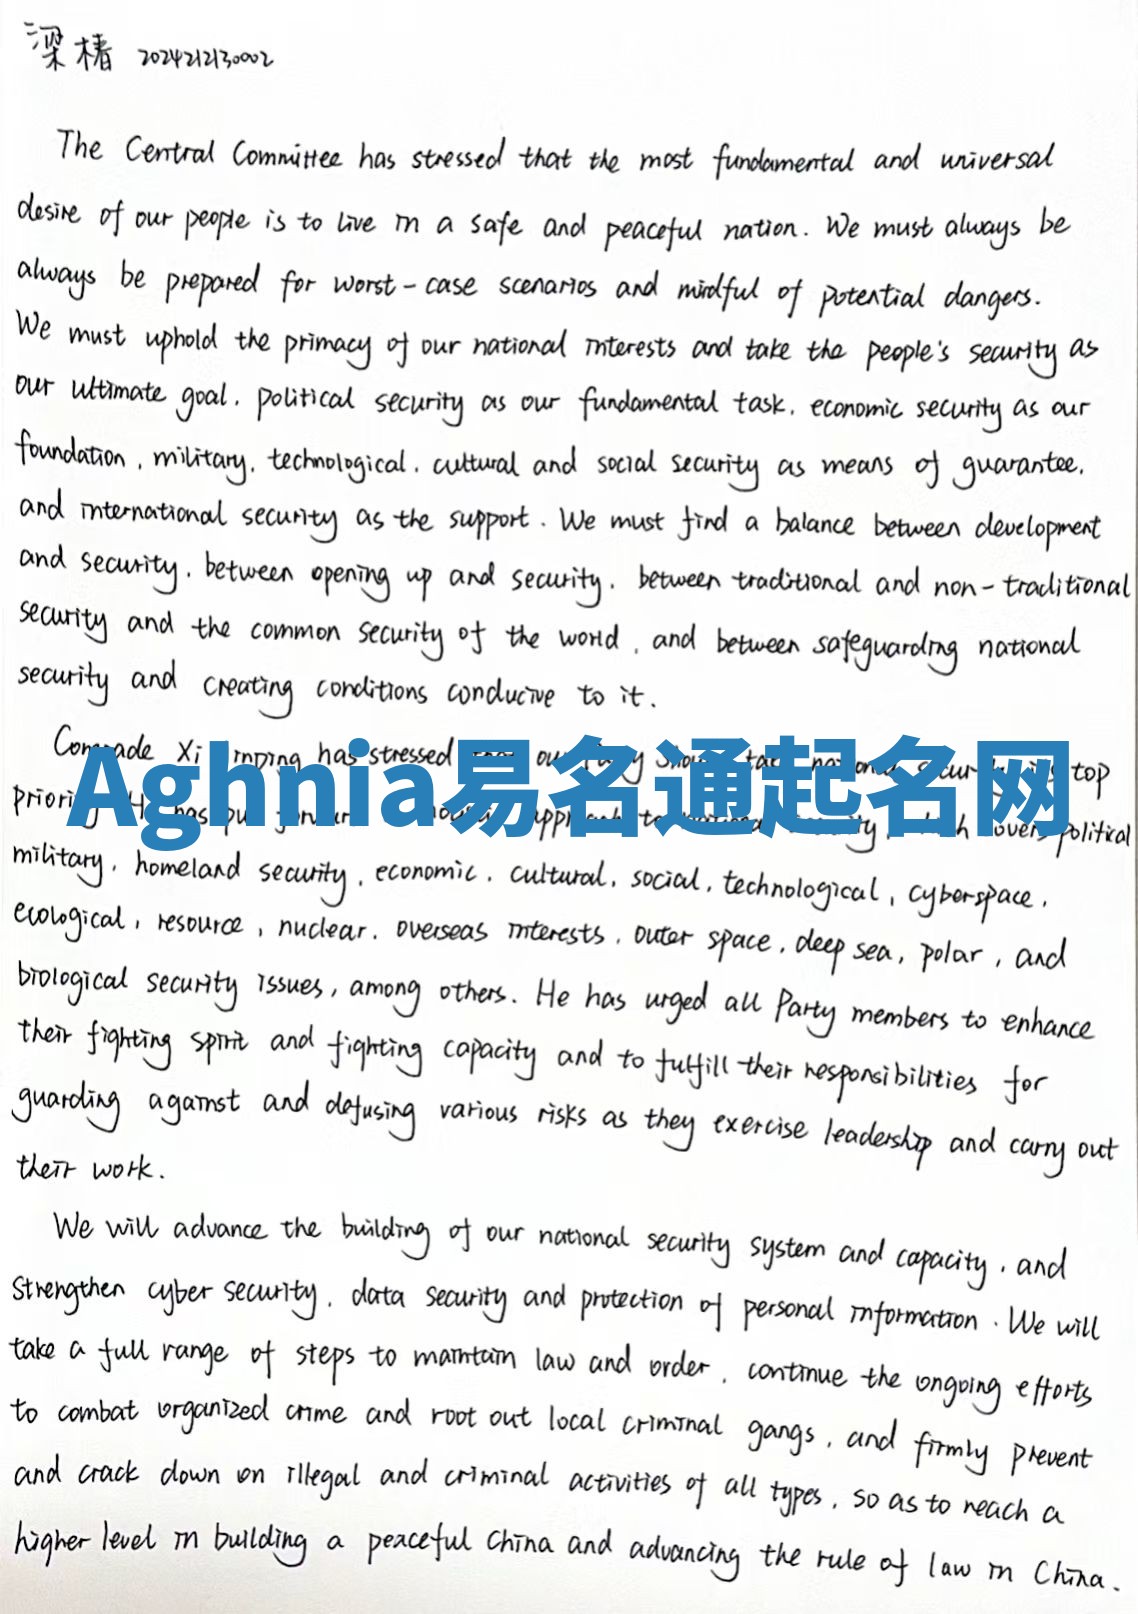 梁椿 2024212130002
The Central Committee has stressed that the most fundamental and universal
desire of our people is to live in a safe and peaceful nation. We must always be
always be prepared for worst-case scenarios and mindful of potential dangers.
We must uphold the primacy of our national interests and take the people's security as
our ultimate goal, political security as our fundamental task, economic security as our
foundation, military, technological, cultural and social security as means of guarantee,
and international security as the support. We must find a balance between development
and security, between opening up and security, between traditional and non-traditional
security and the common security of the world, and between safeguarding national
security and creating conditions conducive to it.
Comrade Xi Jinping has stressed top
Aghnia易名通起名网
political
military, homeland security, economic, cultural, social, technological, cyberspace,
ecological, resource, nuclear, overseas interests, outer space, deep sea, polar, and
biological security issues, among others. He has urged all Party members to enhance
their fighting spirit and fighting capacity and to fulfill their responsibilities for
guarding against and defusing various risks as they exercise leadership and carry out
their work.
We will advance the building of our national security system and capacity, and
strengthen cyber security, data security and protection of personal information. We will
take a full range of steps to maintain law and order, continue the ongoing efforts
to combat organized crime and root out local criminal gangs, and firmly prevent
and crack down on illegal and criminal activities of all types, so as to reach a
higher level in building a peaceful China and advancing the rule of law in China.